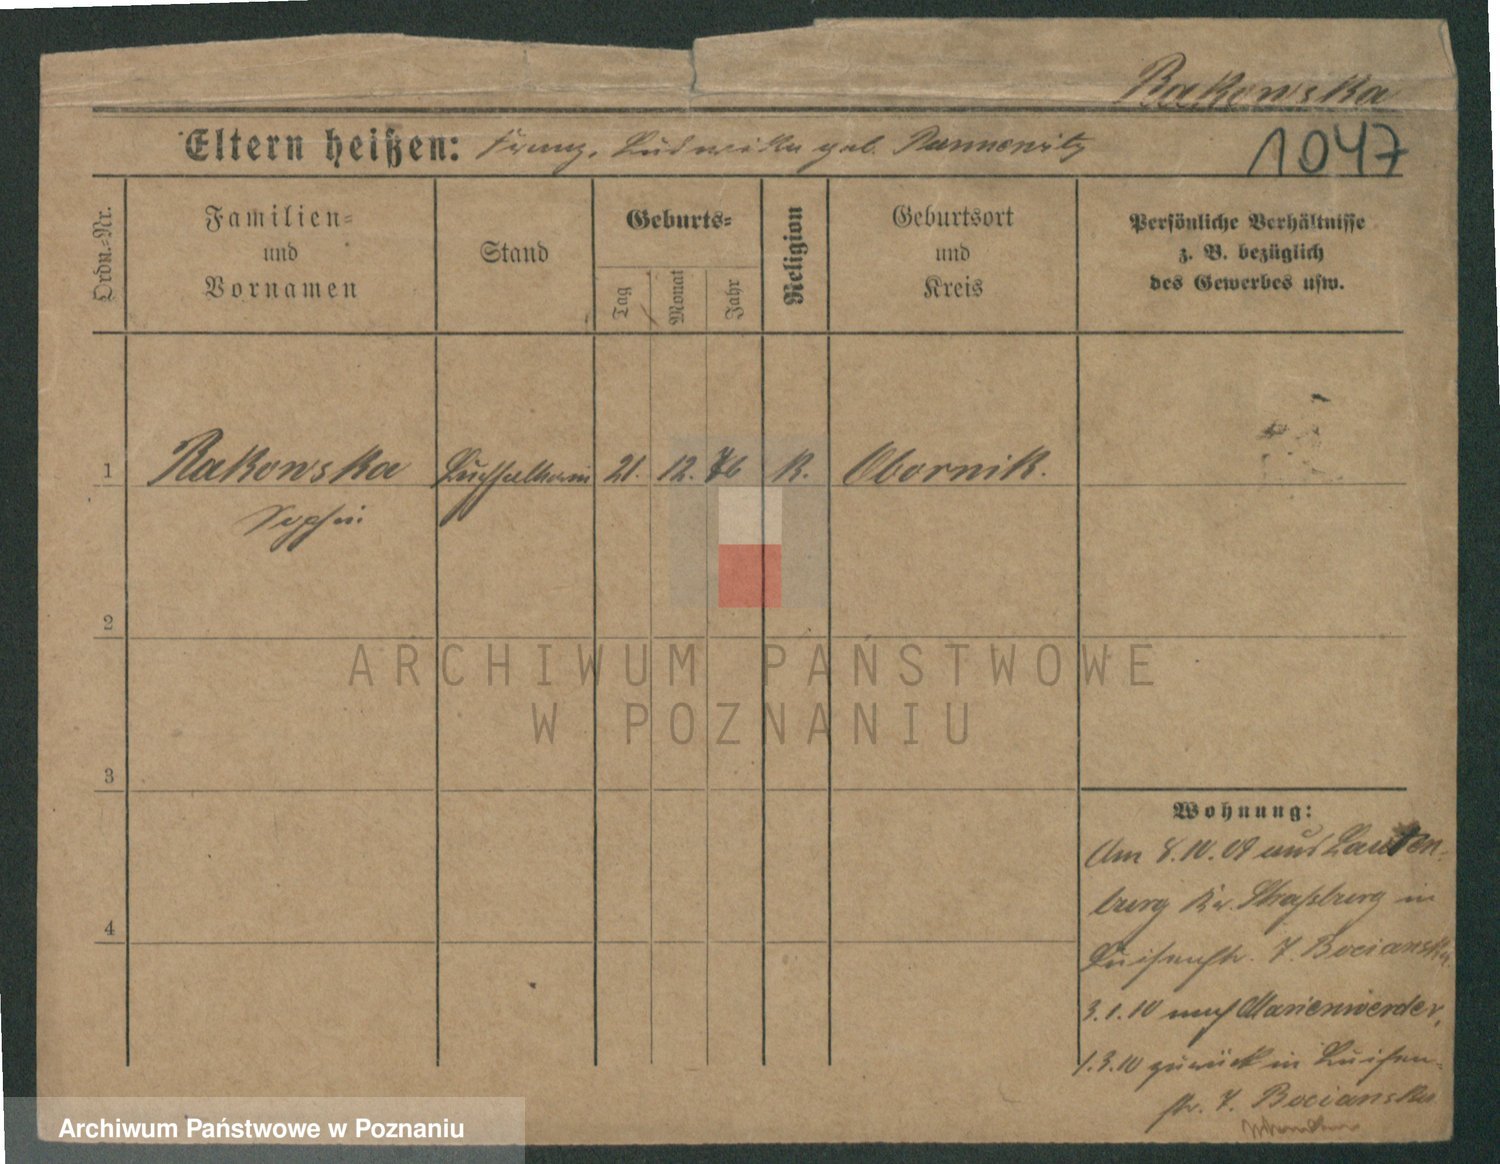 Rakowska
Eltern heißen: Franz, Ludwika geb. Rannowitz
1047
Ordn.-Nr.
Familien-
und
Vornamen
Stand
Geburts-
Tag
Monat
Jahr
Religion
Geburtsort
und
Kreis
Persönliche Verhältnisse
z. B. bezüglich
des Gewerbes usw.
1 Rakowska 21. 12. 76 K. Obornik.
Sophie
2
3
4
Wohnung:
Am 8.10.09 aus Lauten-
burg Kr. Straßburg in
Luisenstr. 7. Bocianska.
3.1.10 nach Marienwerder,
1.3.10 zurück in Luisen-
str. 7. Bocianska
ARCHIWUM PAŃSTWOWE
W POZNANIU
Archiwum Państwowe w Poznaniu